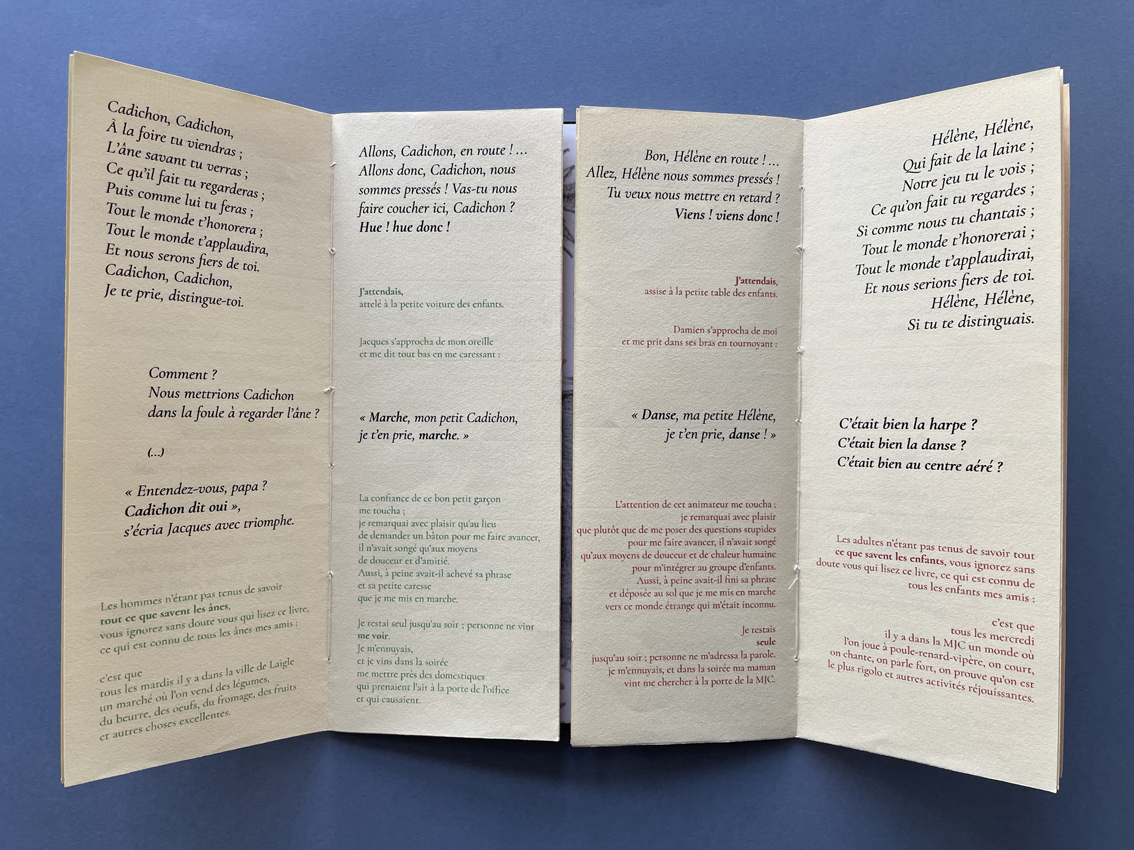 Cadichon, Cadichon,
À la foire tu viendras ;
L'âne savant tu verras ;
Ce qu'il fait tu regarderas ;
Puis comme lui tu feras ;
Tout le monde t'honorera ;
Tout le monde t'applaudira,
Et nous serons fiers de toi.
Cadichon, Cadichon,
Je te prie, distingue-toi.
Comment ?
Nous mettrions Cadichon
dans la foule à regarder l'âne ?
(...)
« Entendez-vous, papa ?
Cadichon dit oui »,
s'écria Jacques avec triomphe.
Les hommes n'étant pas tenus de savoir
tout ce que savent les ânes,
vous ignorez sans doute vous qui lisez ce livre,
ce qui est connu de tous les ânes mes amis :
c'est que
tous les mardis il y a dans la ville de Laigle
un marché où l'on vend des légumes,
du beurre, des oeufs, du fromage, des fruits
et autres choses excellentes.
Allons, Cadichon, en route ! ...
Allons donc, Cadichon, nous
sommes pressés ! Vas-tu nous
faire coucher ici, Cadichon ?
Hue ! hue donc !
J'attendais,
attelé à la petite voiture des enfants.
Jacques s'approcha de mon oreille
et me dit tout bas en me caressant :
« Marche, mon petit Cadichon,
je t'en prie, marche. »
La confiance de ce bon petit garçon
me toucha ;
je remarquai avec plaisir qu'au lieu
de demander un bâton pour me faire avancer,
il n'avait songé qu'aux moyens
de douceur et d'amitié.
Aussi, à peine avait-il achevé sa phrase
et sa petite caresse
que je me mis en marche.
Je restai seul jusqu'au soir ; personne ne vint
me voir.
Je m'ennuyais,
et je vins dans la soirée
me mettre près des domestiques
qui prenaient l'air à la porte de l'office
et qui causaient.
Bon, Hélène en route ! ...
Allez, Hélène nous sommes pressés !
Tu veux nous mettre en retard ?
Viens ! viens donc !
J'attendais,
assise à la petite table des enfants.
Damien s'approcha de moi
et me prit dans ses bras en tournoyant :
« Danse, ma petite Hélène,
je t'en prie, danse ! »
L'attention de cet animateur me toucha ;
je remarquai avec plaisir
que plutôt que de me poser des questions stupides
pour me faire avancer, il n'avait songé
qu'aux moyens de douceur et de chaleur humaine
pour m'intégrer au groupe d'enfants.
Aussi, à peine avait-il fini sa phrase
et déposée au sol que je me mis en marche
vers ce monde étrange qui m'était inconnu.
Je restais
seule
jusqu'au soir ; personne ne m'adressa la parole.
je m'ennuyais, et dans la soirée ma maman
vint me chercher à la porte de la MJC.
Hélène, Hélène,
Qui fait de la laine ;
Notre jeu tu le vois ;
Ce qu'on fait tu regardes ;
Si comme nous tu chantais ;
Tout le monde t'honorerai ;
Tout le monde t'applaudirai,
Et nous serions fiers de toi.
Hélène, Hélène,
Si tu te distinguais.
C'était bien la harpe ?
C'était bien la danse ?
C'était bien au centre aéré ?
Les adultes n'étant pas tenus de savoir tout
ce que savent les enfants, vous ignorez sans
doute vous qui lisez ce livre, ce qui est connu de
tous les enfants mes amis :
c'est que
tous les mercredi
il y a dans la MJC un monde où
l'on joue à poule-renard-vipère, on court,
on chante, on parle fort, on prouve qu'on est
le plus rigolo et autres activités réjouissantes.